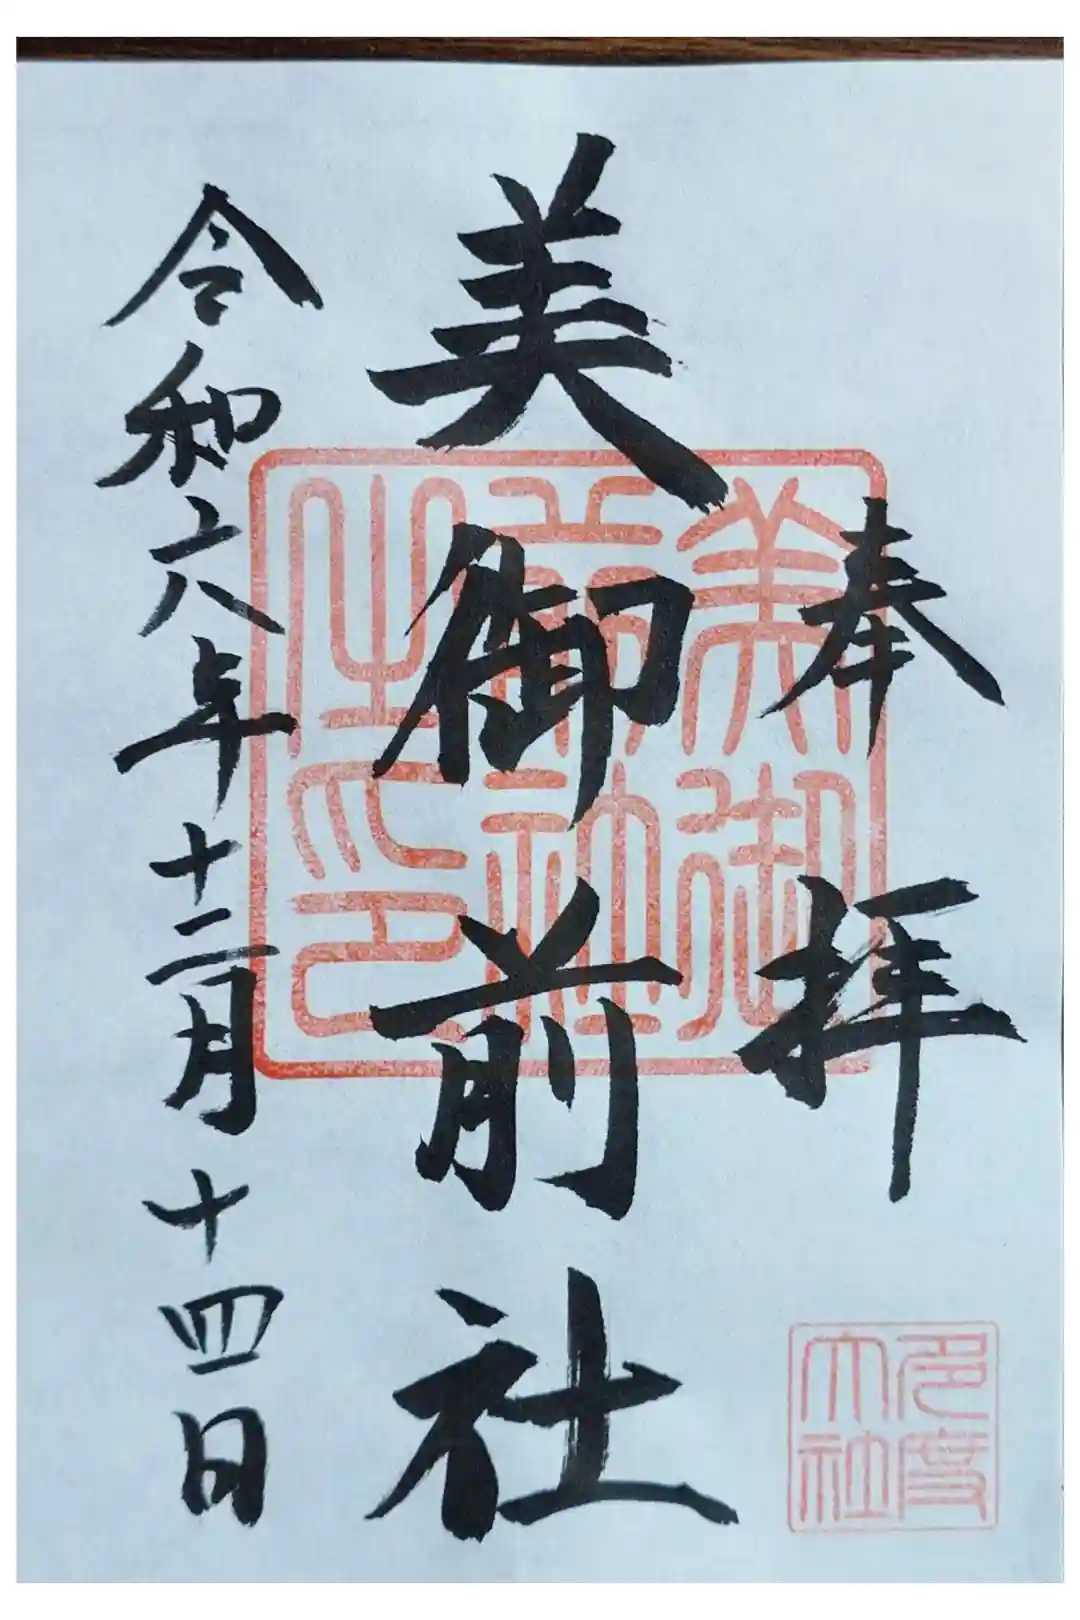 奉拝
美御前社
令和六年十二月十四日
美御
前社
之印
多度
大社